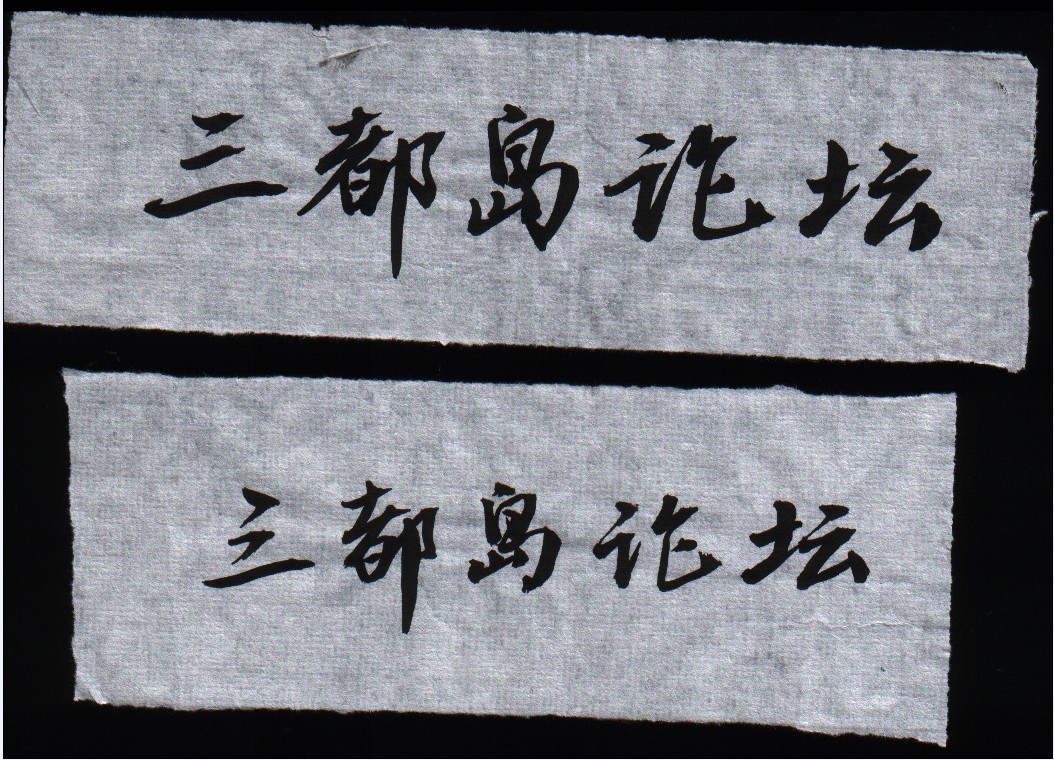 三都岛论坛
三都岛论坛